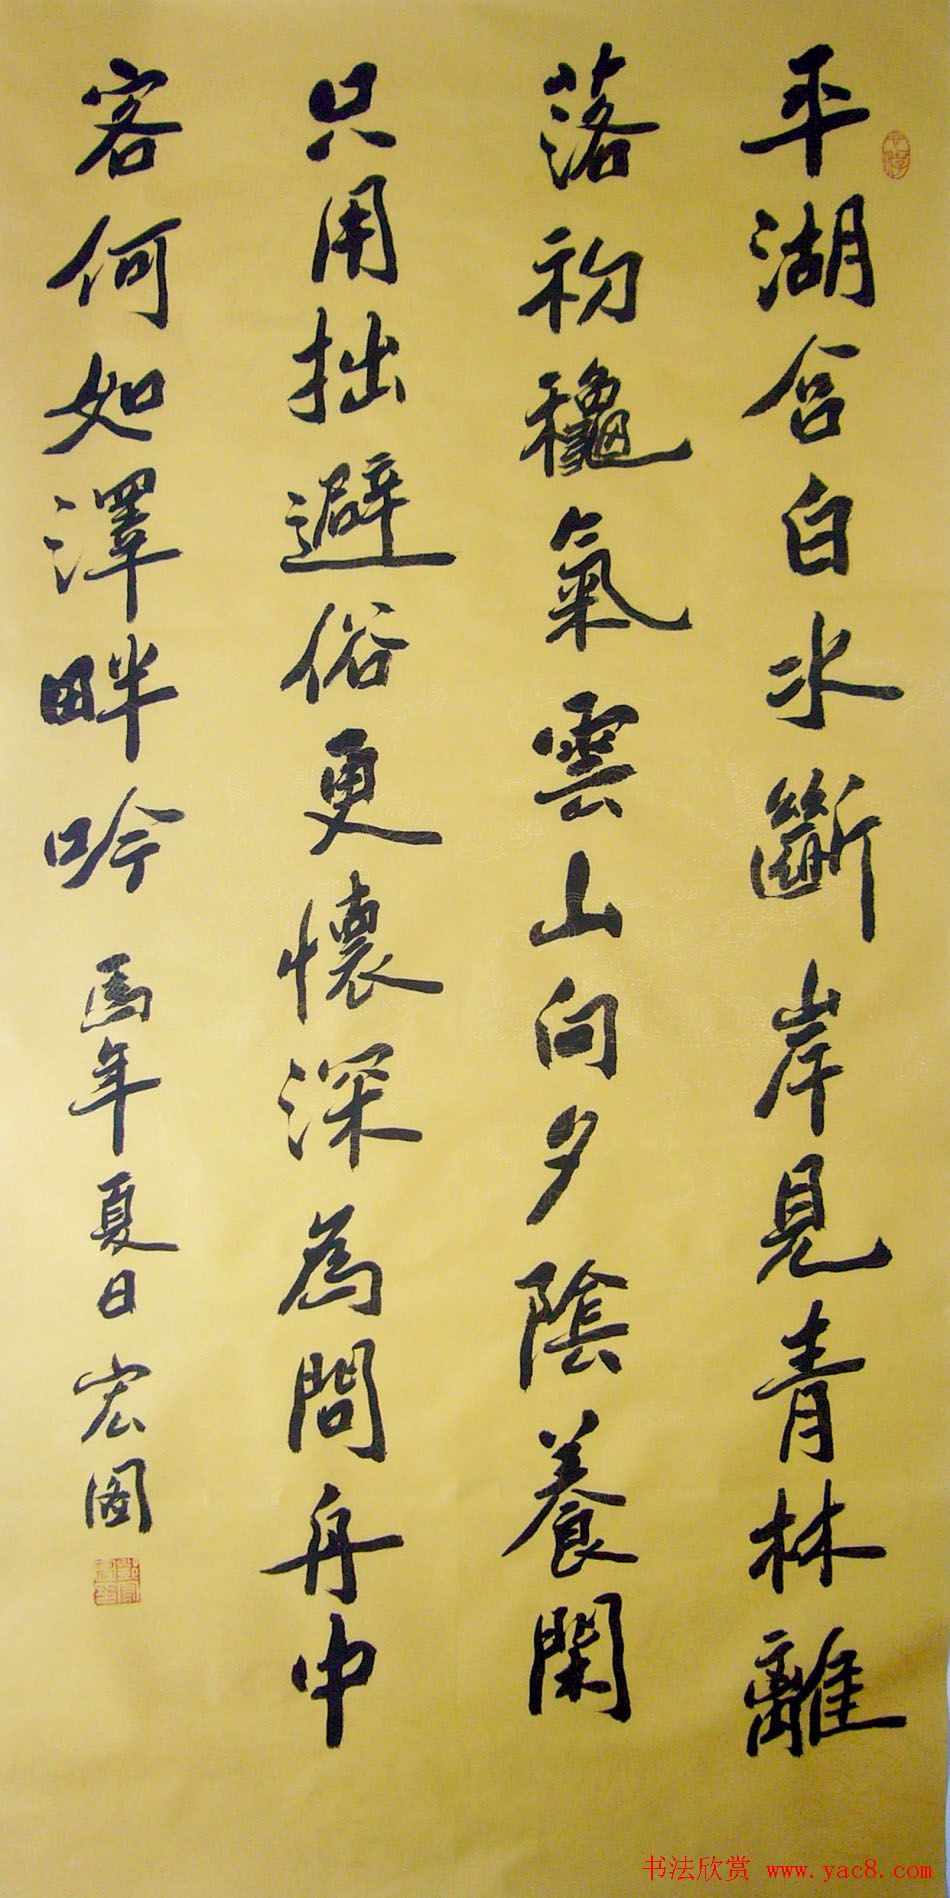 平湖含白水斷岸見青林離
落初龝氣雲山向夕陰養閑
只用拙避俗更懷深為問舟中
客何如澤畔吟 馬年夏日 宏圖
书法欣赏 www.yac8.com